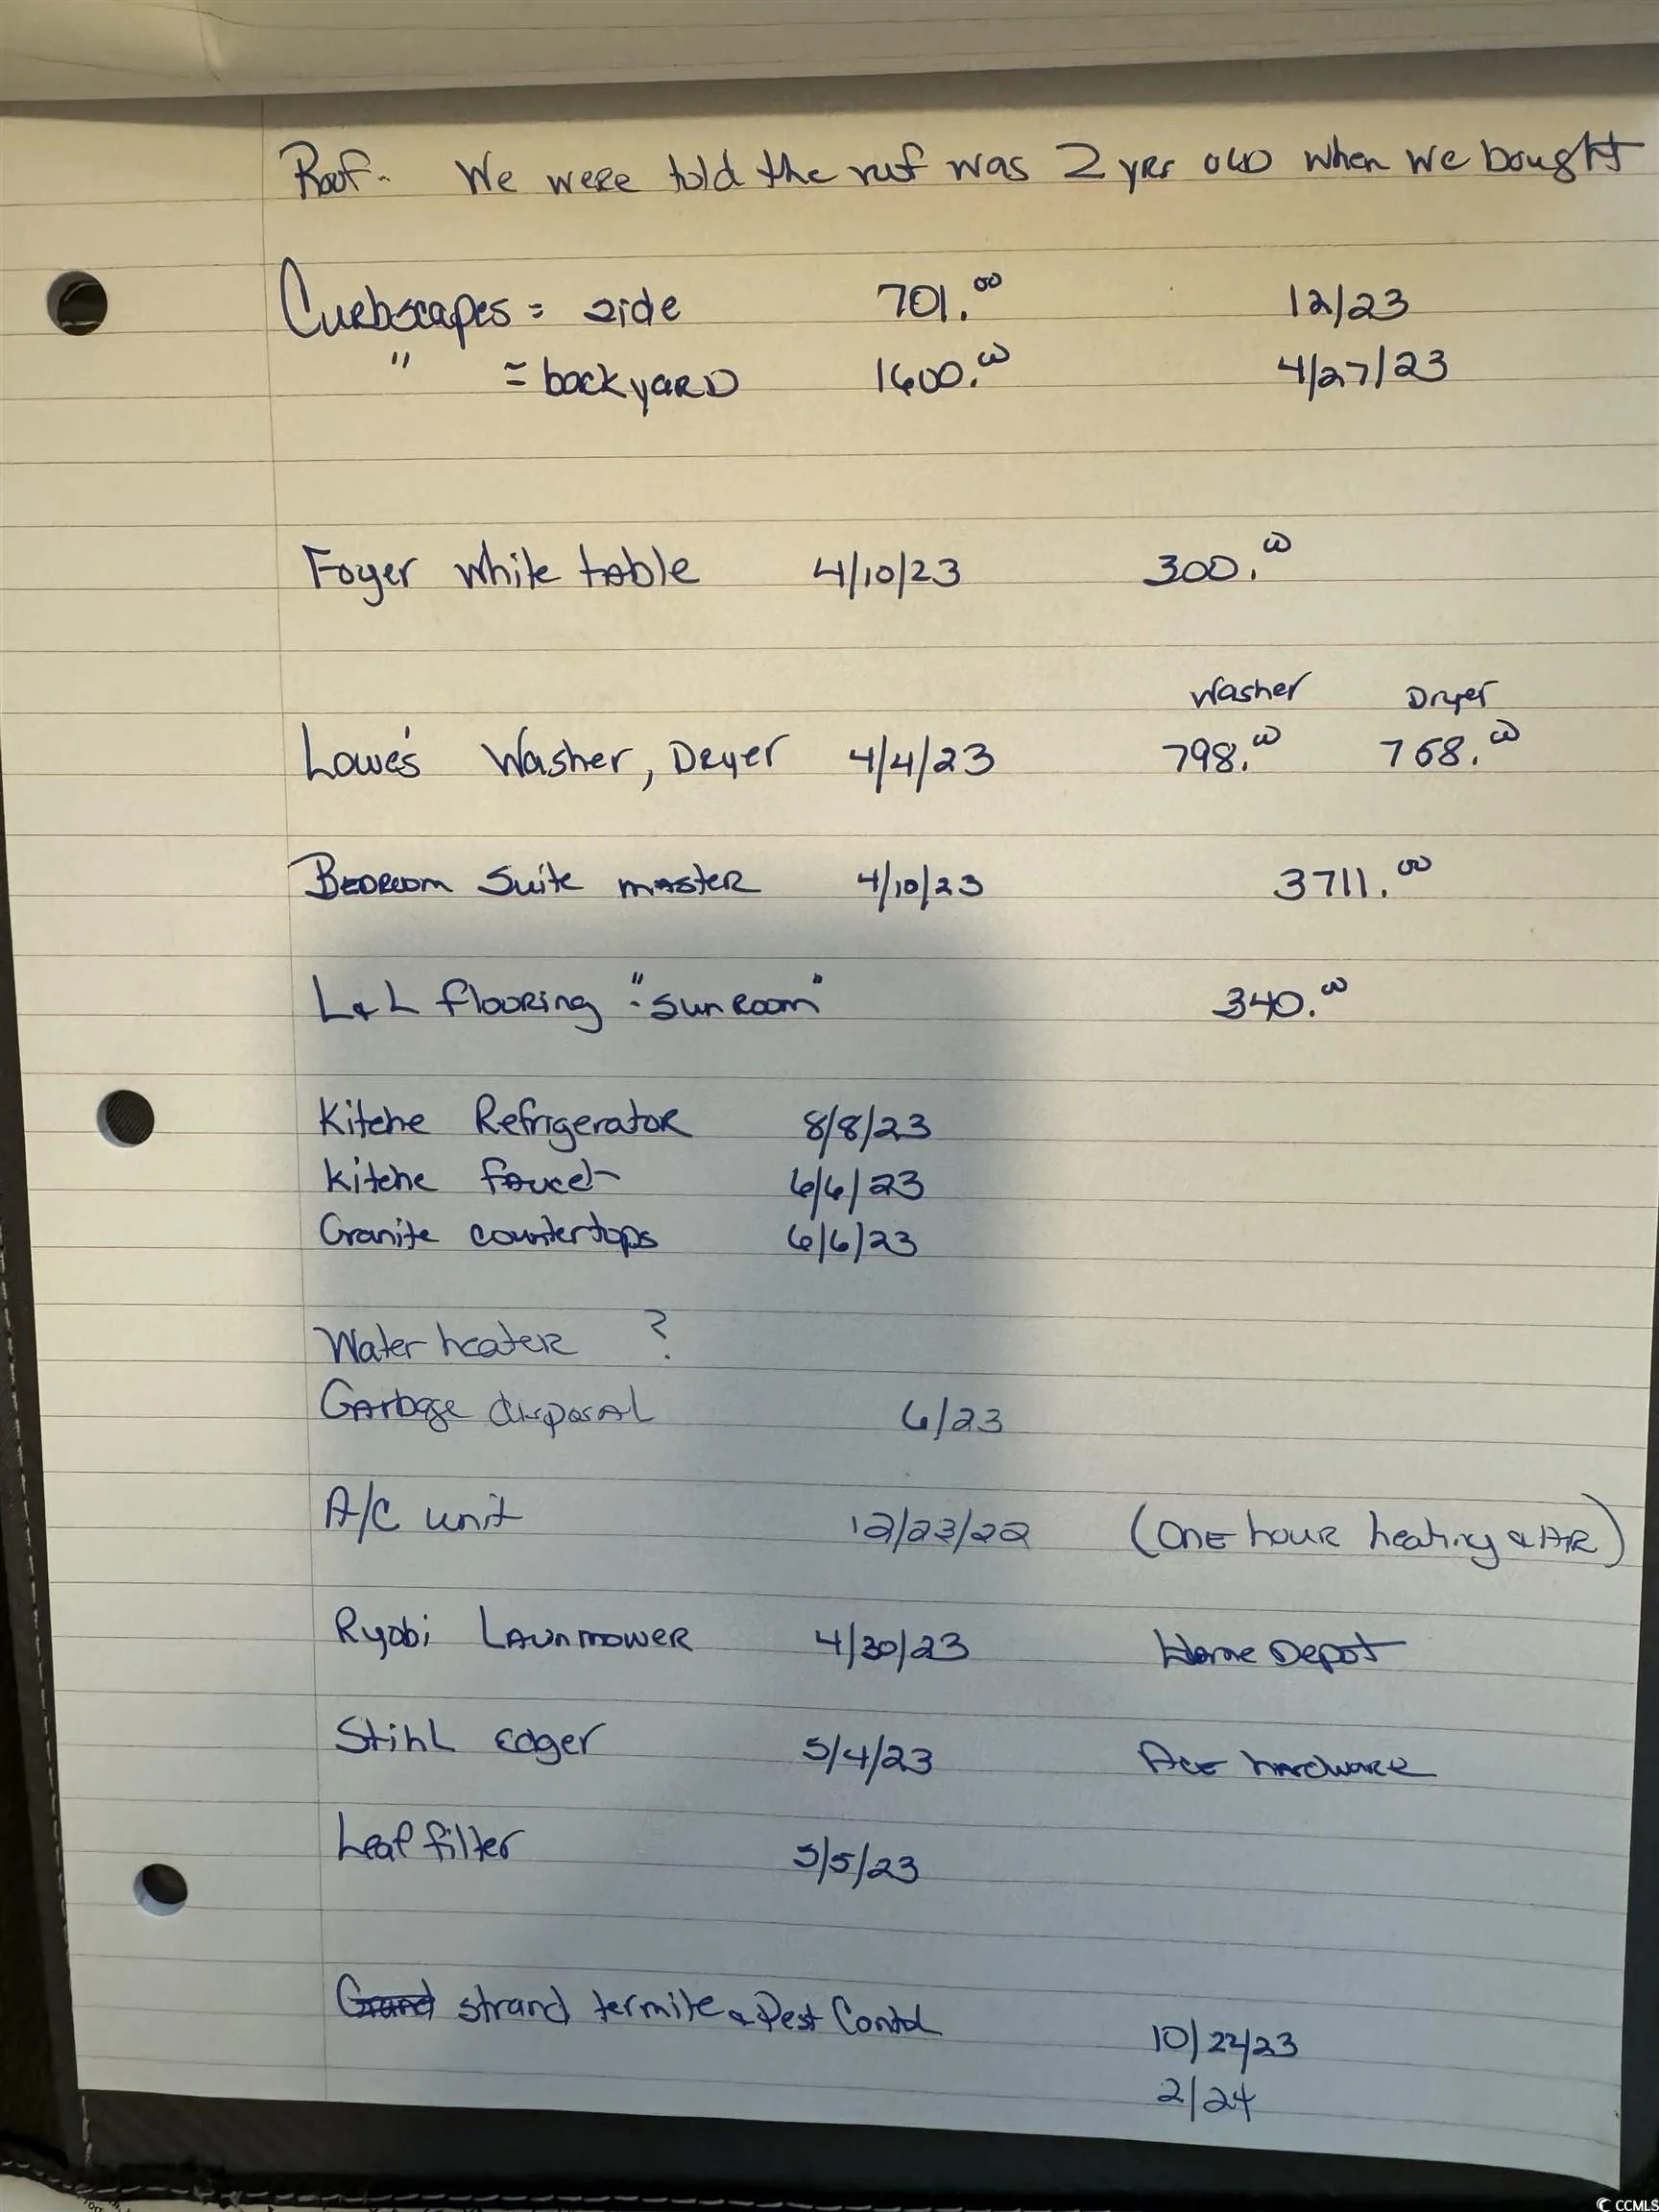 Roof - We were told the ruf was 2 yrs old when we bought
Curbscapes = side 701.00 12/23
" = backyard 1600.00 4/27/23
Foyer white table 4/10/23 300.00
Washer Dryer
Lowe's Washer, Dryer 4/4/23 798.00 768.00
Bedroom Suite master 4/10/23 3711.00
L&L flooring "sunroom" 340.00
Kitche Refrigerator 8/8/23
Kitche faucet 6/6/23
Granite countertops 6/6/23
Water heater ?
Garbage disposal 6/23
A/C unit 12/23/22 (One hour heating & Air)
Ryobi Lawnmower 4/30/23 Home Depot
Stihl edger 5/4/23 Ace hardware
Leaf filter 5/5/23
Grand strand termite & Pest Contol
10/22/23
2/24
CCMLS